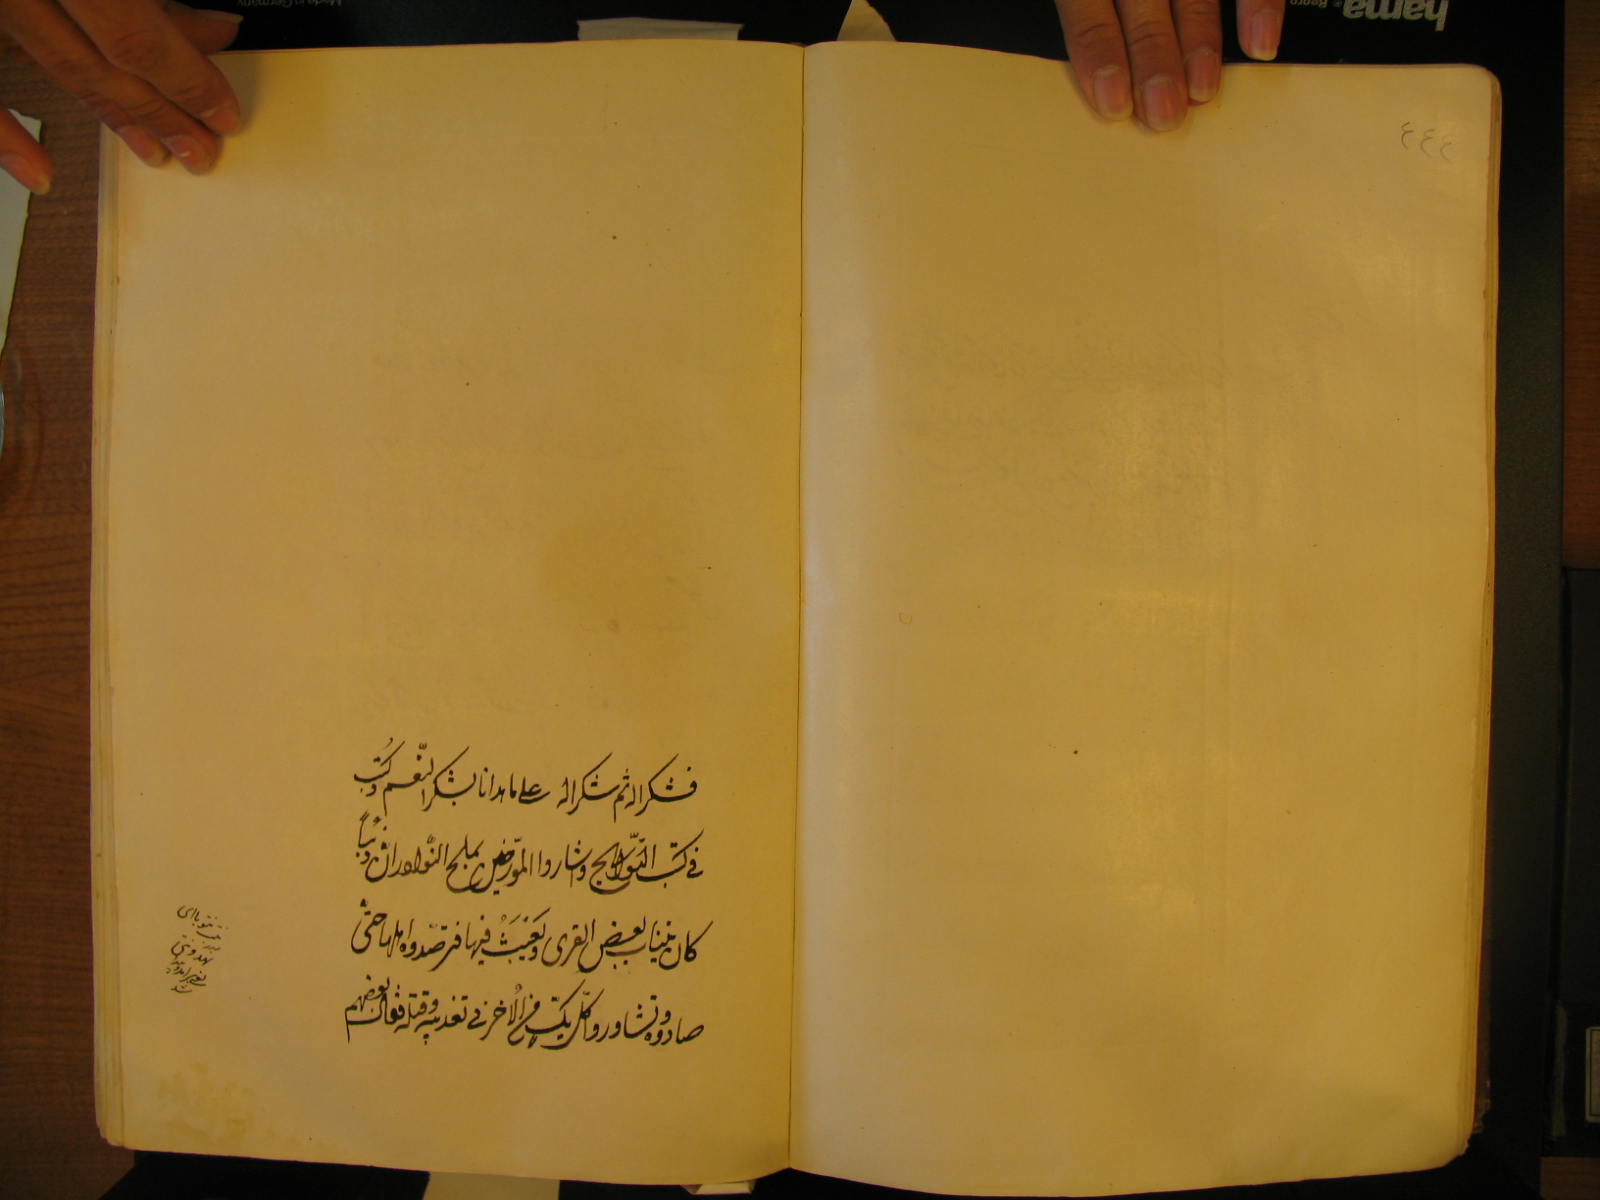 ٤٤٤
فشكرا له ثم شكرا له على ما هدانا بشكر النعم وكتب
في كتب التواريخ وشاروا المورخين بملح النوادر ان ذئبا
كان ينتاب بعض القرى ويعيث فيها فترصدوه اهلها حتى
صادوه وتشاوروا كل يكب في الاخر في تعذيبه وقتله فقال بعضهم
hama
Made in Germany